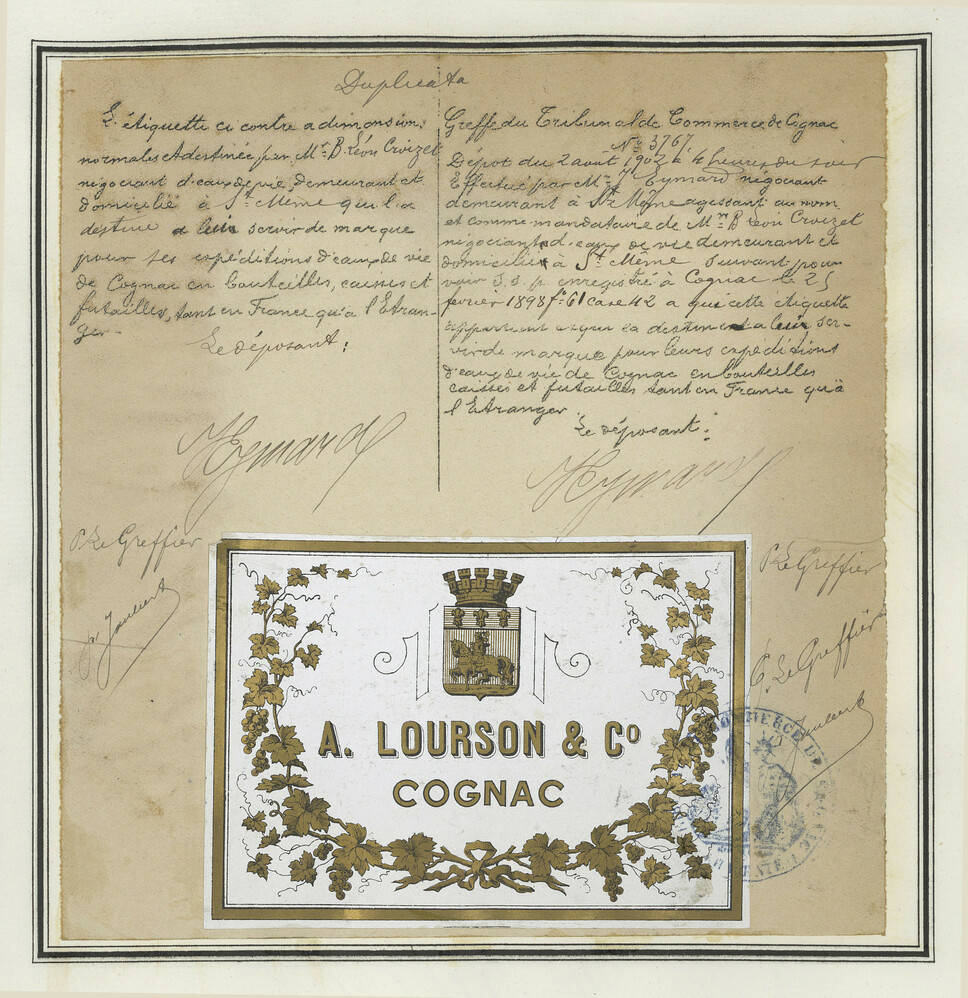 Duplicata
L'étiquette ci contre a dimensions
normales et destinée par Mr. B. Léon Croizet
négociant d'eaux de vie, demeurant et
domicilié à St. Même qui l'a
destine a leur servir de marque
pour ses expéditions d'eaux de vie
de Cognac en bouteilles, caisses et
futailles, tant en France qu'à l'Etran-
ger.
Le déposant:
HEymard
Pr Le Greffier
Greffe du Tribunal de Commerce de Cognac
No 3767
Dépot du 2 aout 1902 à 4 heures du soir
Effectué par Mr. H Eymard négociant
demeurant à St Même agissant au nom
et comme mandataire de Mrs B Léon Croizet
négociants d'eaux de vie demeurant et
domicilié à St. Même suivant pou-
voir s.s.p. enregistré à Cognac le 25
fevrier 1898 fo 61 case 42 a que cette étiquette
appartient et qu'il la destinent a leur ser-
vir de marque pour leurs expéditions
d'eaux de vie de Cognac en bouteilles
caisses et futailles tant en France qu'à
l'Etranger
Le déposant:
HEymard
Pr Le Greffier
P. Le Greffier
A. LOURSON & Co
COGNAC
COMMERCE DE